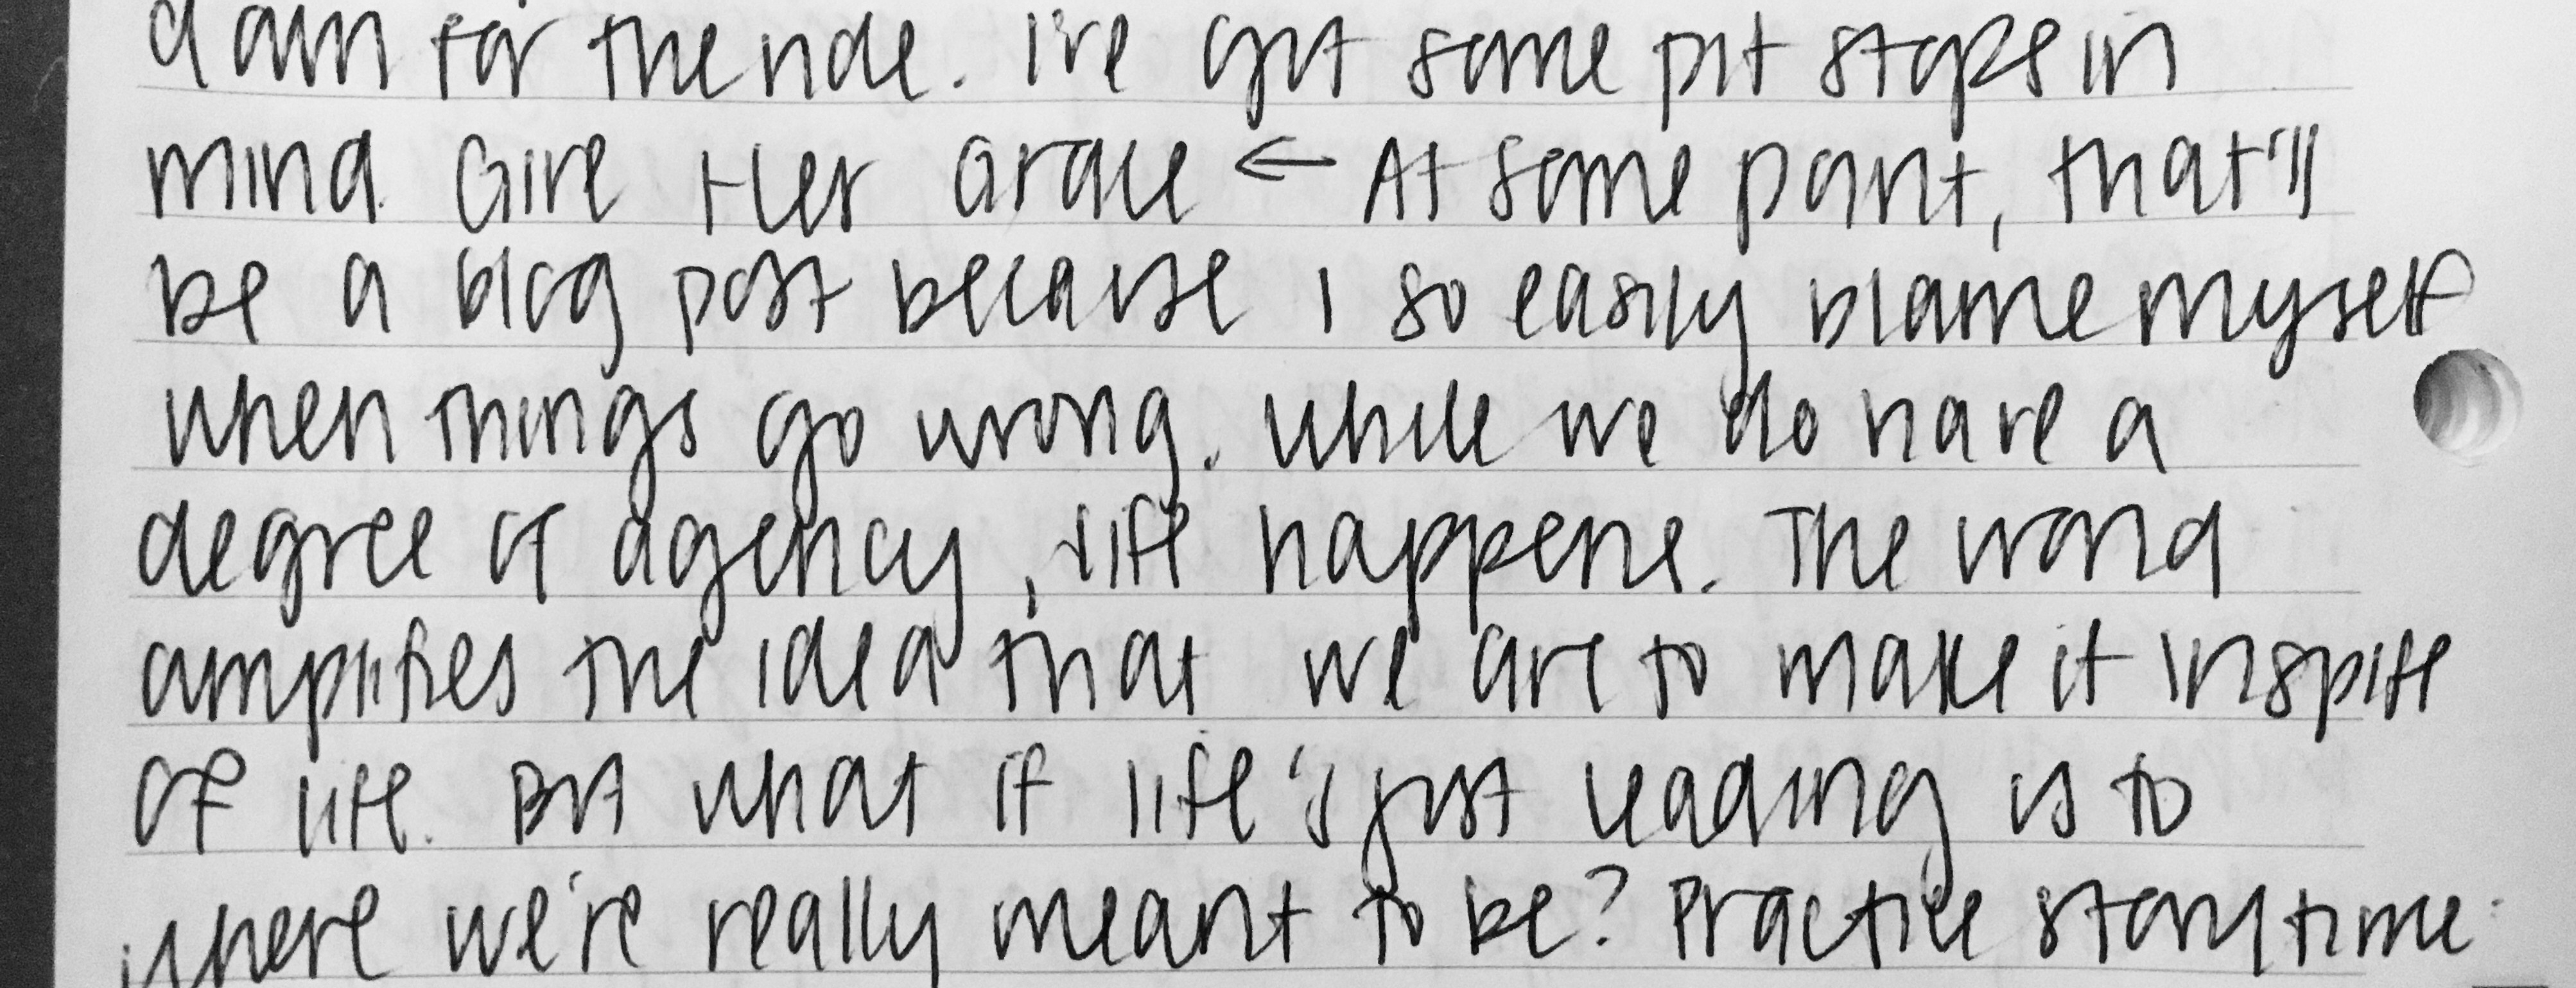 down for the ride. I've got some pit stops in
mind. Give Her Grace ← At some point, that'll
be a blog post because I so easily blame myself
when things go wrong. While we do have a
degree of agency, life happens. The world
amplifies the idea that we are to make it inspite
of life. But what if life's just leading us to
where we're really meant to be? Practice storytime.